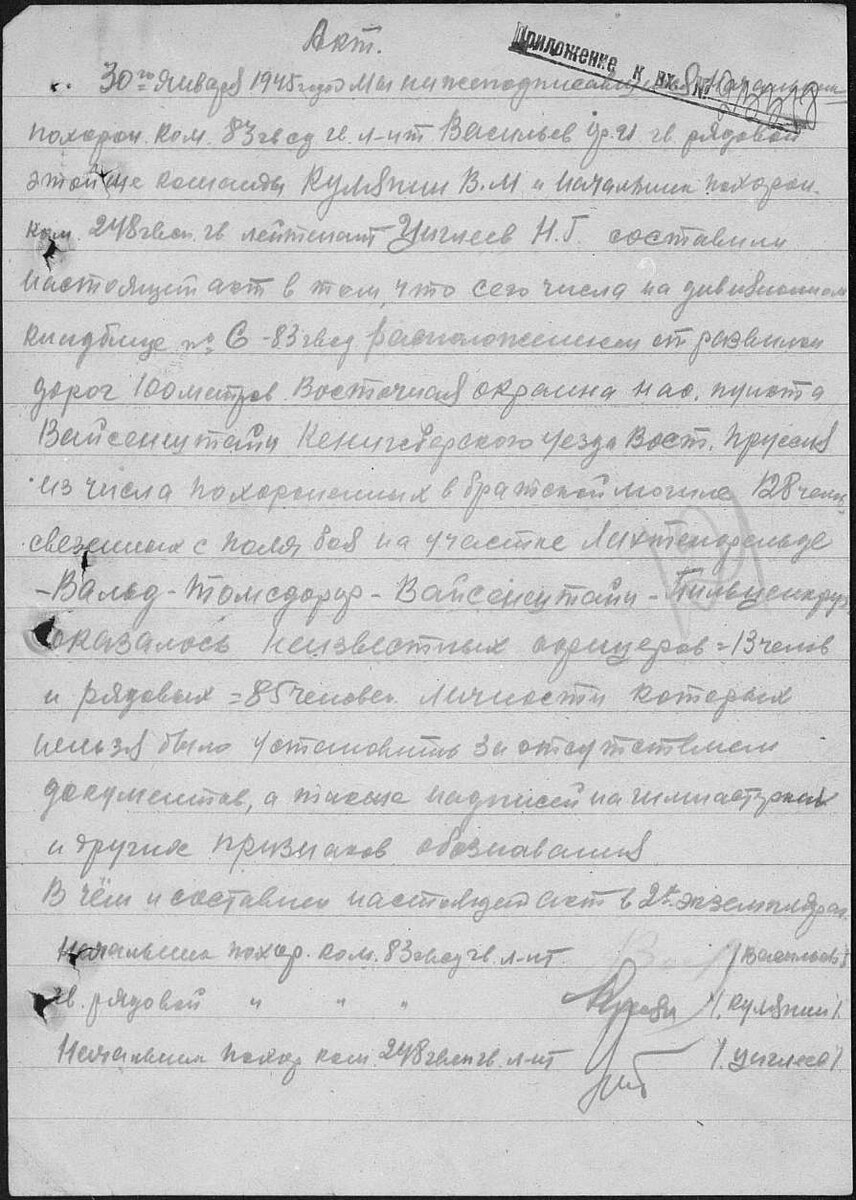 Акт.
Приложение к вх. №
30го января 1945 года Мы нижеподписавшиеся Начальник
похорон. ком. 83 гв сд гв. л-нт Васильев гв. рядовой
этой же команды Кулябин В.М и начальник похорон.
ком. 248 гвсп. гв лейтенант Уиглеев Н.Г. составили
настоящий акт в том, что сего числа на дивизионном
кладбище № 6 - 83 гвсд расположением от развилки
дорог 100 метров Восточная окраина нас. пункта
Вайсенштайн Кенигсбергского уезда Вост. Пруссия
из числа похороненных в братской могиле 128 челов.
свезенных с поля боя на участке Лихтенфельде
-Вальд - Томсдорф - Вайсенштайн -
оказалось неизвестных офицеров = 13 челов
и рядовых = 85 человек личности которых
нельзя было установить за отсутствием
документов, а также надписей на гимнастерках
и других признаков обознавания
В чём и составлен настоящей акт в 2х экземплярах.
Начальник похор. ком. 83 гвсд гв. л-нт. / Васильев /
гв. рядовой " " " /. Кулябин /.
Начальник похор ком. 248 гвсп гв. л-нт /. Уиглеев /.